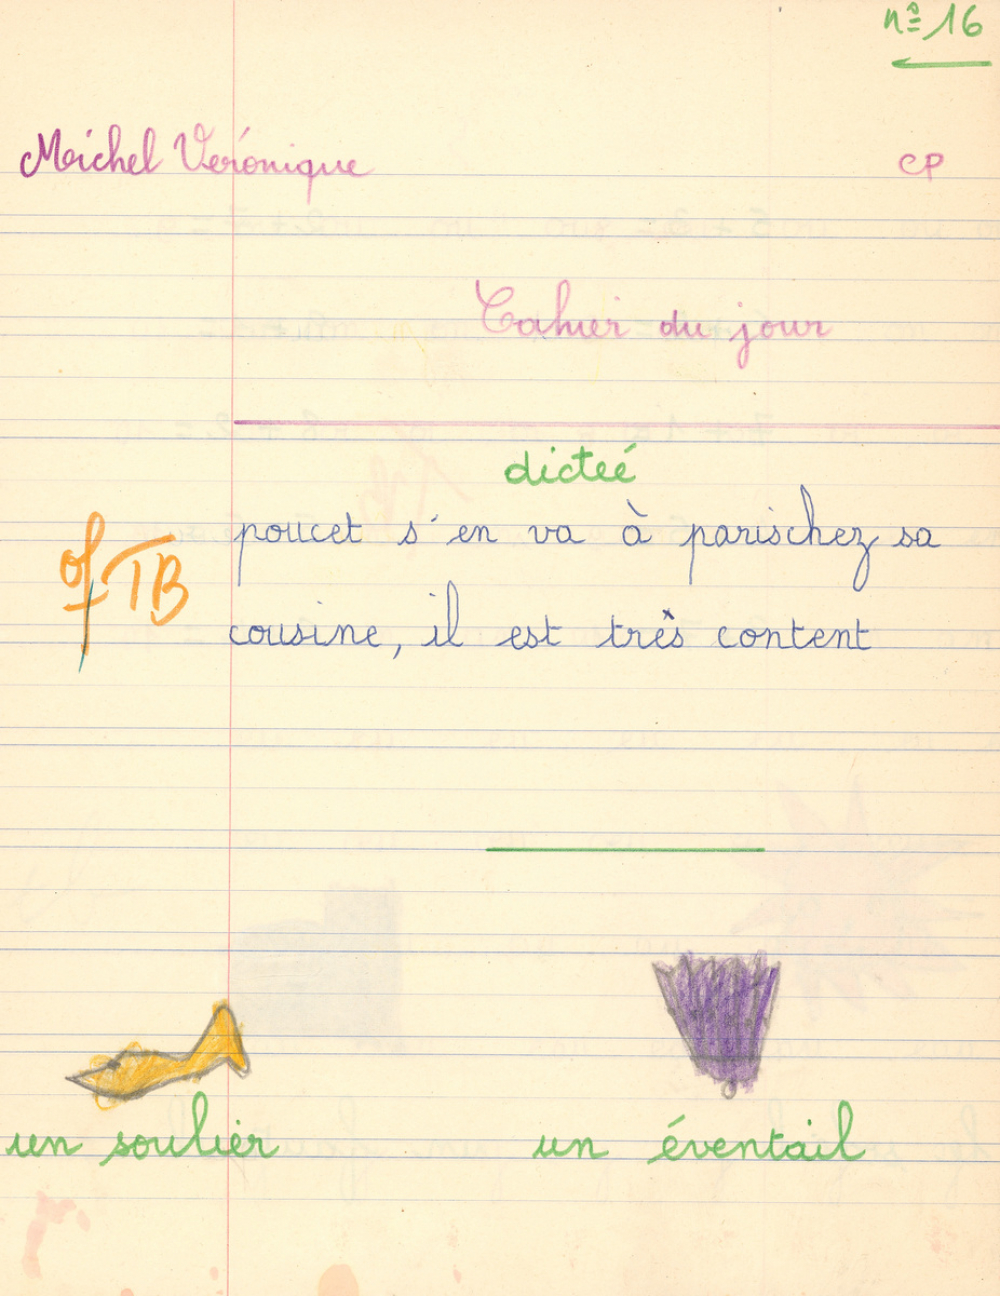 n° 16
Michel Veronique
CP
Cahier du jour
dicteé
poucet s'en va à parischez sa
of TB
cousine, il est très content
un soulier
un éventail